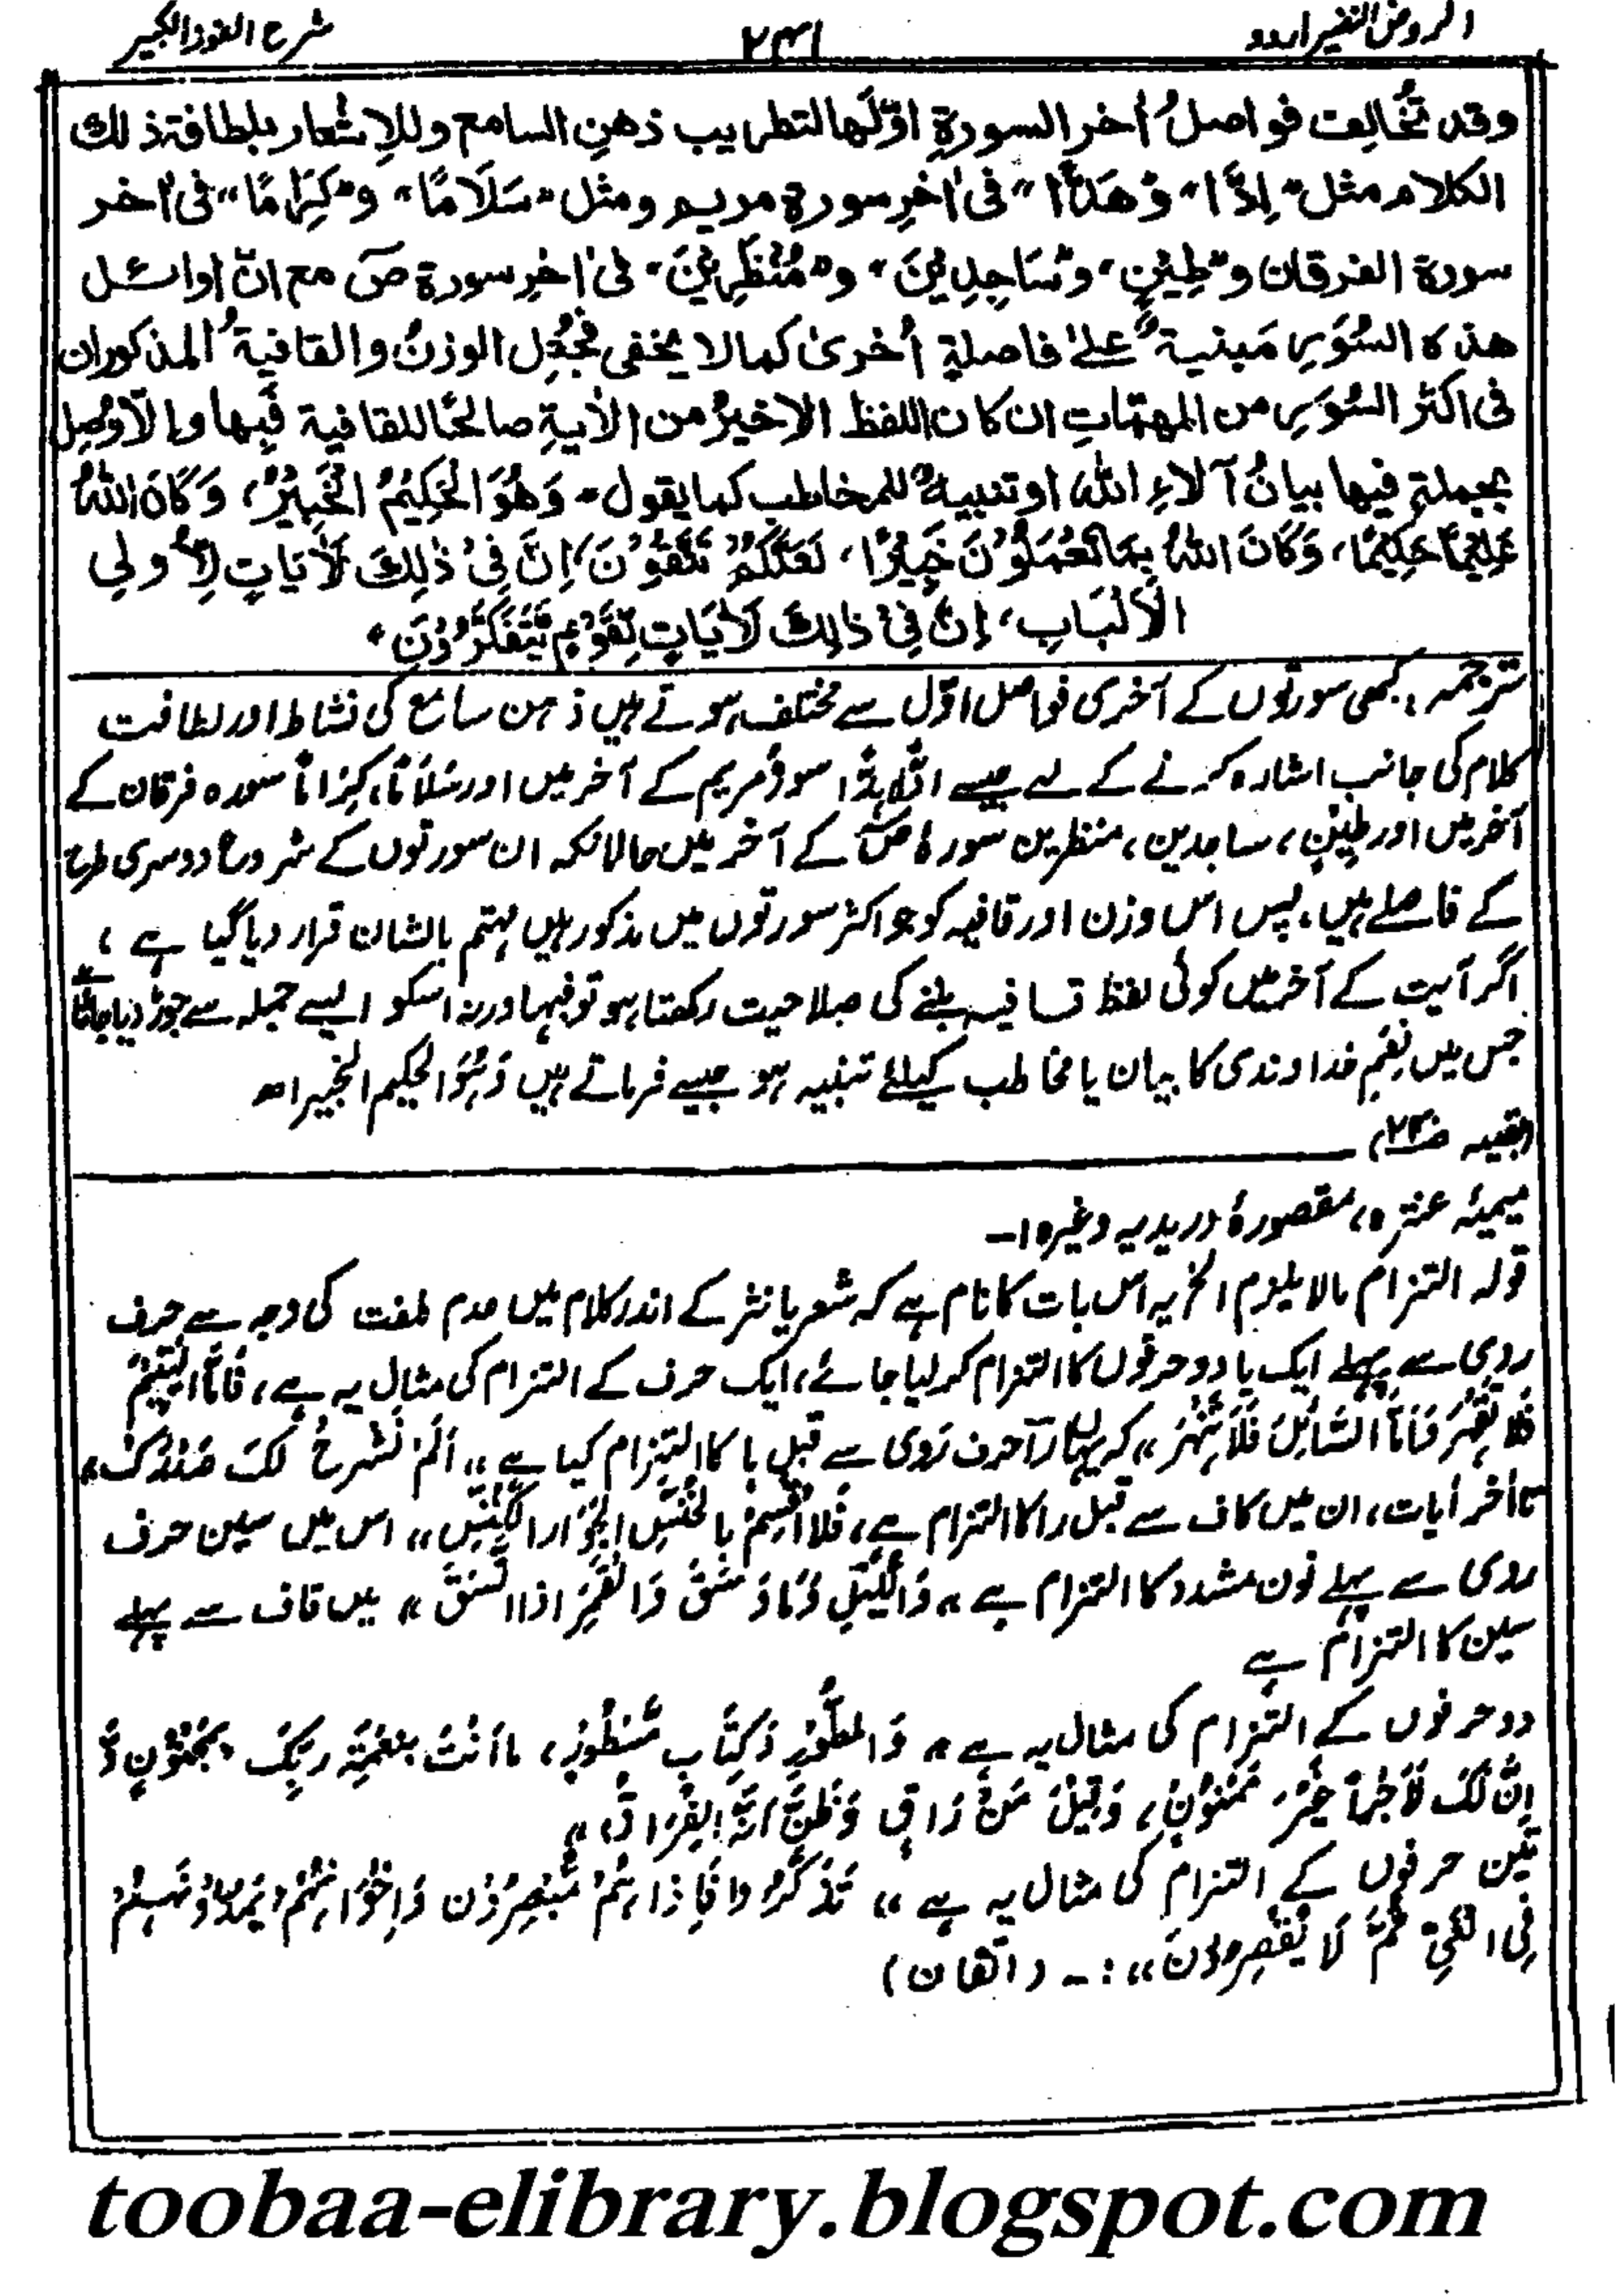 الروض النضیر اردو ۲۴۱ شرح الفوز الکبیر
وقد تُخالِف فواصلُ اٰخرِ السورةِ اوّلَها لتطریب ذهنِ السامع وللاِشعار بلطافة ذلك
الکلام مثل "اِدًّا" و"هَدًّا" فی اٰخرِ سورة مریم ومثل "سَلَامًا" و"کِرَامًا" فی اٰخر
سورة الفرقان و"طِیْنٍ" و"سَاجِدِیْنَ" و"مُنْظَرِیْنَ" فی اٰخرِ سورة صٓ مع انّ اوائل
هذه السُوَرِ مَبنیة علیٰ فاصلةٍ اُخریٰ کما لا یخفی فجُعِل الوزنُ والقافیةُ المذکوران
فی اکثر السُوَرِ من المهمّاتِ ان کان اللفظ الاخیرُ من الاٰیةِ صالحًا للقافیة فَبِها والّا وُصِل
بجملةٍ فیها بیانُ آلاءِ اللّٰه او تنبیهٌ للمخاطب کما یقول "وَهُوَ الْحَکِیْمُ الْخَبِیْرُ، وَکَانَ اللّٰهُ
عَلِیْمًا حَکِیْمًا، وَکَانَ اللّٰهُ بِمَا تَعْمَلُوْنَ خَبِیْرًا، لَعَلَّکُمْ تَتَّقُوْنَ، اِنَّ فِیْ ذٰلِكَ لَاٰیَاتٍ لِّاُولِی
الْاَلْبَابِ، اِنَّ فِیْ ذَالِكَ لَاٰیَاتٍ لِّقَوْمٍ یَّتَفَکَّرُوْنَ"
ترجمہ: کبھی سورتوں کے آخری فواصل اوّل سے مختلف ہوتے ہیں ذہن سامع کی نشاط اور لطافت
کلام کی جانب اشارہ کرنے کے لئے جیسے ادًّا، ہدًّا سورۂ مریم کے آخر میں اور سَلَامًا، کِرَامًا سورہ فرقان کے
آخر میں اور طِیْنٍ، ساجدین، منظرین سورۂ صٓ کے آخر میں حالانکہ ان سورتوں کے شروع دوسری طرح
کے فاصلے ہیں، پس اس وزن اور قافیہ کو جو اکثر سورتوں میں مذکور ہیں مہتم بالشان قرار دیا گیا ہے،
اگر آیت کے آخر میں کوئی لفظ قافیہ بننے کی صلاحیت رکھتا ہو تو فبہا ورنہ اسکو ایسے جملہ سے جوڑ دیا جاتا ہے
جس میں نِعَمِ خداوندی کا بیان یا مخاطب کیلئے تنبیہ ہو جیسے فرماتے ہیں وَہُوَ الحکیم الخبیر الخ
(بقیہ ص۲۴۰)
میمیۂ عنترہ، مقصورۂ دریدیہ وغیرہ ا۔
قولہ التزام مالا یلزم الخ یہ اس بات کا نام ہے کہ شعر یا نثر کے اندر کلام میں عدم کلفت کی وجہ سے حرف
روی سے پہلے ایک یا دو حرفوں کا التزام کر لیا جائے، ایک حرف کے التزام کی مثال یہ ہے، فَاَمَّا الْیَتِیْمَ
فَلَا تَقْہَرْ وَاَمَّا السَّائِلَ فَلَا تَنْہَرْ،، کہ یہاں را حرف رَوی سے قبل ہا کا التزام کیا ہے ،،اَلَمْ نَشْرَحْ لَکَ صَدْرَکَ،،
تا اٰخر اٰیات، ان میں کاف سے قبل را کا التزام ہے، فَلَا اُقْسِمُ بِالْخُنَّسِ الْجَوَارِ الْکُنَّسِ،، اس میں سین حرف
روی سے پہلے نون مشدد کا التزام ہے "وَالَّیْلِ وَمَا وَسَقَ وَالْقَمَرِ اِذَا اتَّسَقَ" میں قاف سے پہلے
سین کا التزام ہے
دو حرفوں کے التزام کی مثال یہ ہے "وَالطُّوْرِ وَکِتَابٍ مَّسْطُوْرٍ، مَا اَنْتَ بِنِعْمَۃِ رَبِّکَ بِمَجْنُوْنٍ وَّ
اِنَّ لَکَ لَاَجْرًا غَیْرَ مَمْنُوْنٍ، وَقِیْلَ مَنْ رَاقٍ وَظَنَّ اَنَّہُ الْفِرَاقُ،،
تین حرفوں کے التزام کی مثال یہ ہے ،،تَذَکَّرُوا فَاِذَا ہُمْ مُّبْصِرُوْن وَاِخْوَانُہُمْ یَمُدُّوْنَہُمْ
فِی الْغَیِّ ثُمَّ لَا یُقْصِرُوْنَ،،:۔ (اتقان)
toobaa-elibrary.blogspot.com